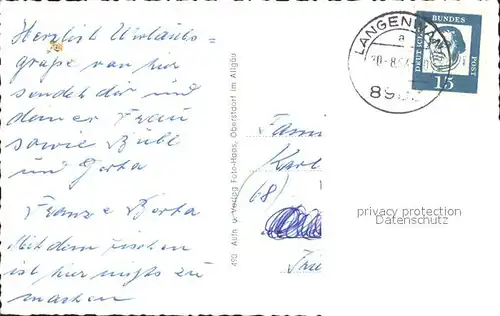 Herzlich Uirlaubs=
grüße von hir
sendet dir und
deiner Frau
sowie
und Gerta
Franz e Berta
Mit dem fischen
ist hir nigts zu
machen
490 Aufn. u. Verlag Foto-Haas, Oberstdorf im Allgäu
LANGENWAN
a
8
DEUTSCHE
BUNDES
POST
15
Fami
Karl
(68)
privacy protection
Datenschutz